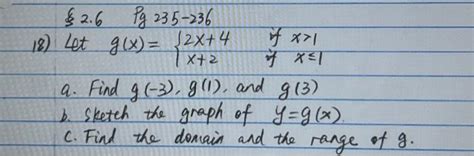 § 2.6 Pg 235-236
18) Let g(x) = { 2x+4 if x>1
x+2 if x≤1
a. Find g(-3), g(1), and g(3)
b. Sketch the graph of y=g(x).
c. Find the domain and the range of g.